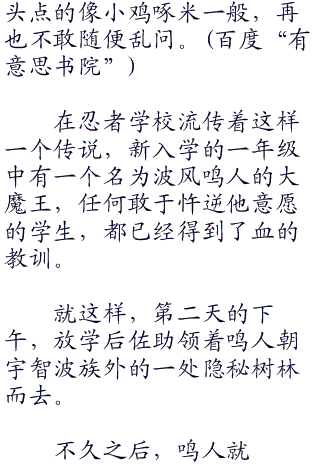 头点的像小鸡啄米一般，再
也不敢随便乱问。（百度“有
意思书院”）
在忍者学校流传着这样
一个传说，新入学的一年级
中有一个名为波风鸣人的大
魔王，任何敢于忤逆他意愿
的学生，都已经得到了血的
教训。
就这样，第二天的下
午，放学后佐助领着鸣人朝
宇智波族外的一处隐秘树林
而去。
不久之后，鸣人就